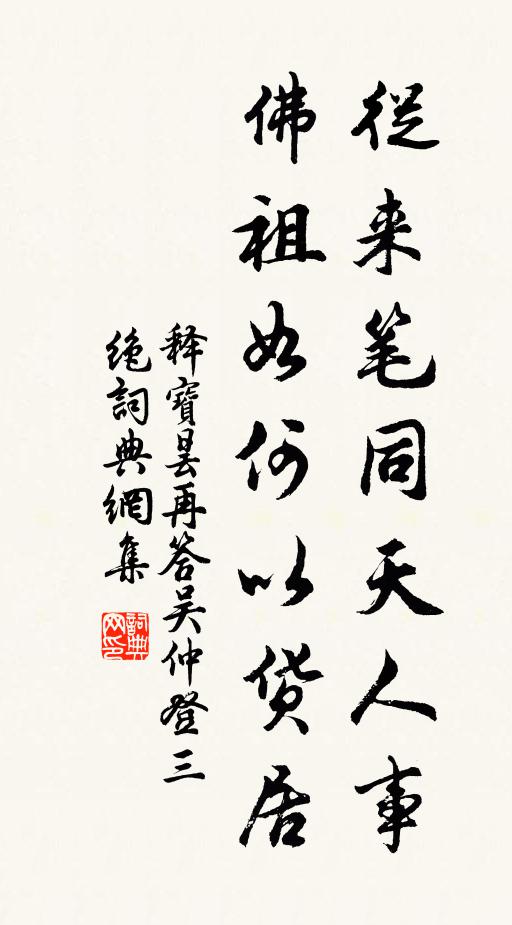 從来笔同天人事
佛祖如何以货居
释寶昙再答吴仲登三
绝詞典網集
詞典网印